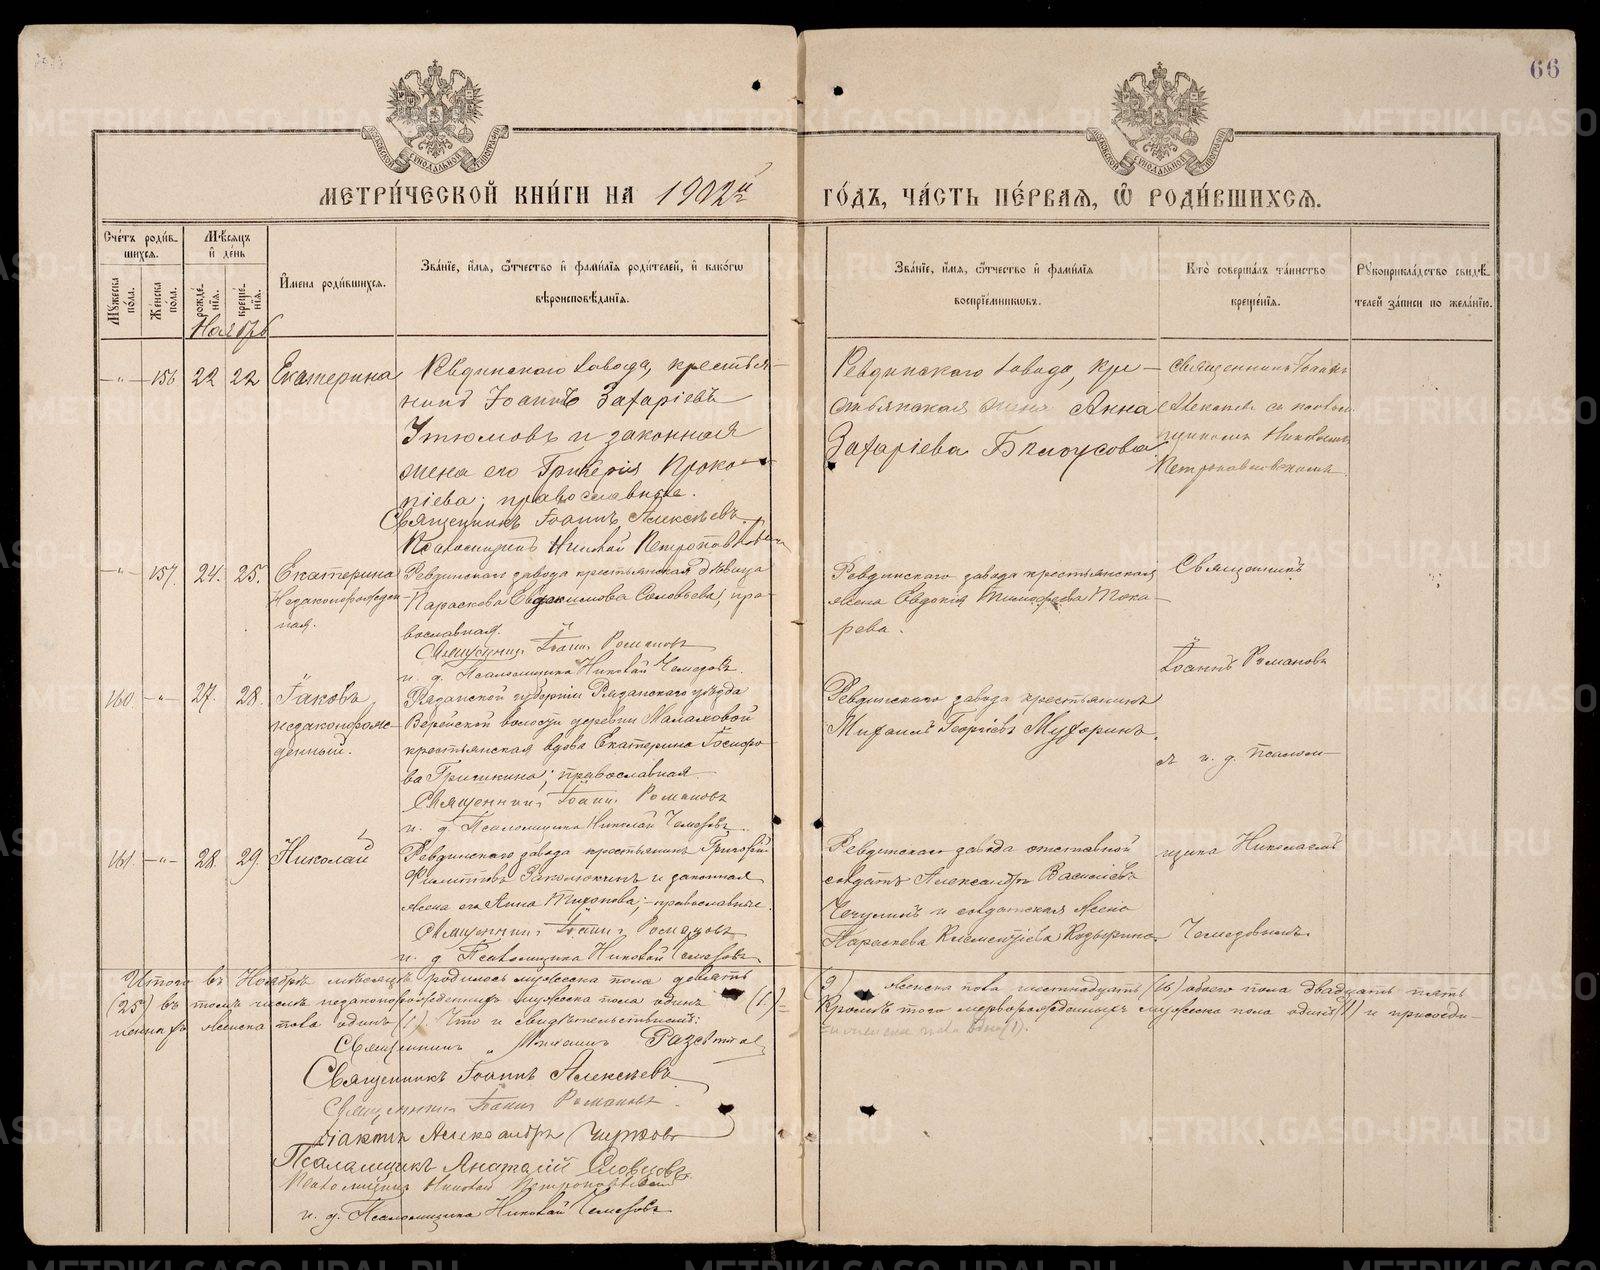 66
МОСКОВСКОЙ СѴНОДАЛЬНОЙ ТИПОГРАФІИ
МОСКОВСКОЙ СѴНОДАЛЬНОЙ ТИПОГРАФІИ
МЕТРИ́ЧЕСКОЙ КНИ́ГИ НА 1902й ГО́ДЪ, ЧА́СТЬ ПЕ́РВАѦ, Ѡ҆ РОДИ́ВШИХСѦ.
Сче́тъ роди́в-
шихсѧ.
Мѣ́сѧцъ
и҆ де́нь
Мꙋ́жеска по́ла.
Же́нска по́ла.
рожде́-нїѧ.
креще́-нїѧ.
И҆мена роди́вшихсѧ.
Зва́нїе, и҆́мѧ, ѻ҆́тчество и҆ фамѝлїѧ роди́телей, и҆ како́гѡ
вѣроисповѣ́данїѧ.
Зва́нїе, и҆́мѧ, ѻ҆́тчество и҆ фамѝлїѧ
воспрїе́мникѡвъ.
Кто̀ соверша́лъ та́инство
креще́нїѧ.
Рꙋкоприкла́дство свидѣ́-
телей за́писи по жела́нїю.
Ноябрь
-"- 156 22 22 Екатерина
Ревдинскаго завода, крестья-
нинъ Іоаннъ Захаріевъ
Утюмовъ и законная
жена его Гликерія Проко-
піева; православные.
Священникъ Іоаннъ Алексѣевъ
Псаломщикъ Николай Петропавловскій
Ревдинскаго завода, кре-
стьянская жена Анна
Захаріева Бѣлоусова
Священникъ Іоаннъ
Алексѣевъ съ псалом-
щикомъ Николаемъ
Петропавловскимъ.
-"- 157 24. 25. Екатерина
Незаконорожден-
ная.
Ревдинскаго завода крестьянская дѣвица
Параскова Евдокимова Соловьева, пра-
вославная.
Священникъ Іоаннъ Романовъ
и. д. Псаломщика Николай Чемодовъ
Ревдинскаго завода крестьянская
жена Евдокія Тимофеева Тока-
рева.
Священникъ
Іоаннъ Романовъ
160. -"- 27. 28. Іаковъ
незаконорож-
денный.
Рязанской губерніи Рязанскаго уѣзда
волости деревни
крестьянская вдова Екатерина
православная
Священникъ Іоаннъ Романовъ
и. д. Псаломщика Николай Чемодовъ
Ревдинскаго завода крестьянинъ
Михаилъ Георгіевъ Мухоринъ.
и. д. псалом-
161. -"- 28. 29. Николай
Ревдинскаго завода крестьянинъ Григорій
Филиповъ и законная
жена его Анна православные.
Священникъ Іоаннъ Романовъ
и. д. Псаломщика Николай Чемодовъ
Ревдинскаго завода отставной
солдатъ Александръ Василіевъ
и солдатская жена
Параскева Климентіева
щика Николаемъ
Чемодовымъ.
Итого въ Ноябрѣ мѣсяцѣ родилось мужеска пола девять (9) женска пола шестнадцать (16) обоего пола двадцать пять
(25) въ томъ числѣ незаконорожденныхъ мужеска пола одинъ (1) Кромѣ того мертворожденныхъ мужеска пола одинъ (1) и присоеди-
женска пола одинъ (1). Что и свидѣтельствуемъ:
Священникъ
Священникъ Іоаннъ Алексѣевъ
Священникъ Іоаннъ Романовъ.
Діаконъ Александръ
Псаломщикъ Анатолій Словцовъ
Псаломщикъ Николай Петропавловскій
и. д. Псаломщика Николай Чемодовъ
METRIKI.GASO-URAL.RU